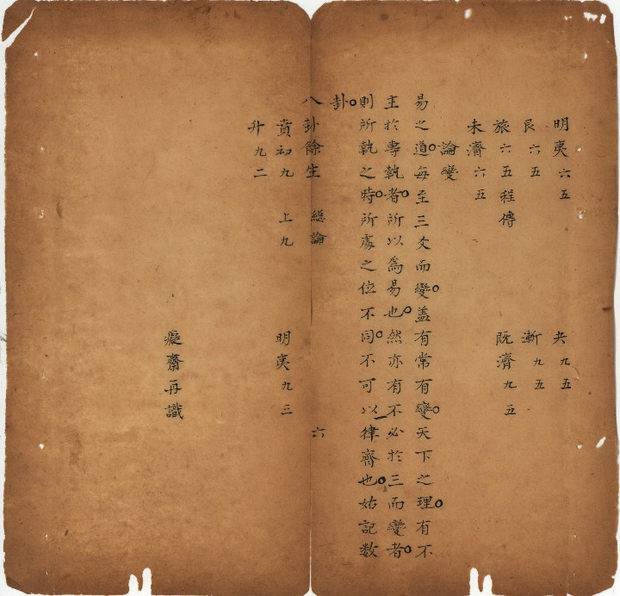 明夷六五　夬九五
艮六五　漸九五
旅六五程傳　既濟九五
未濟六五
論變
易之道每至三爻而變盖有常有變天下之理有不
主於專執者所以為易也然亦有不必於三而變者
則所執之時所處之位不同不可以一律齊也姑記数
卦
八卦餘生　緫論　六
賁初九　上九　明夷九三
升九二
癡齋再識